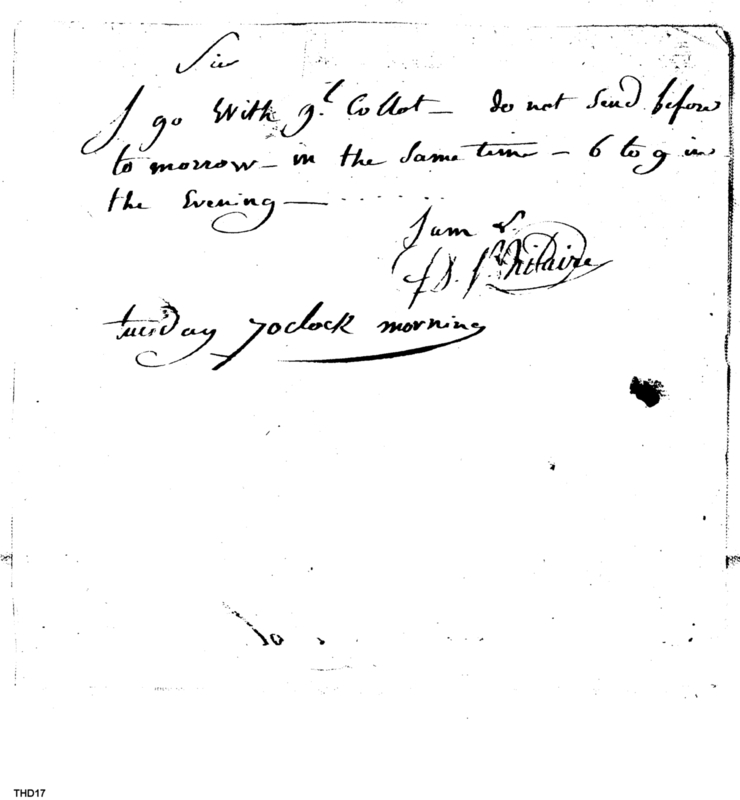 Sir
I go With g.l Collot — do not Send before
to morrow — in the Same time — 6 to 9 in
the Evening — . . . . . .
I am &.
St hilaire
tuesday 7 oclock morning
THD17